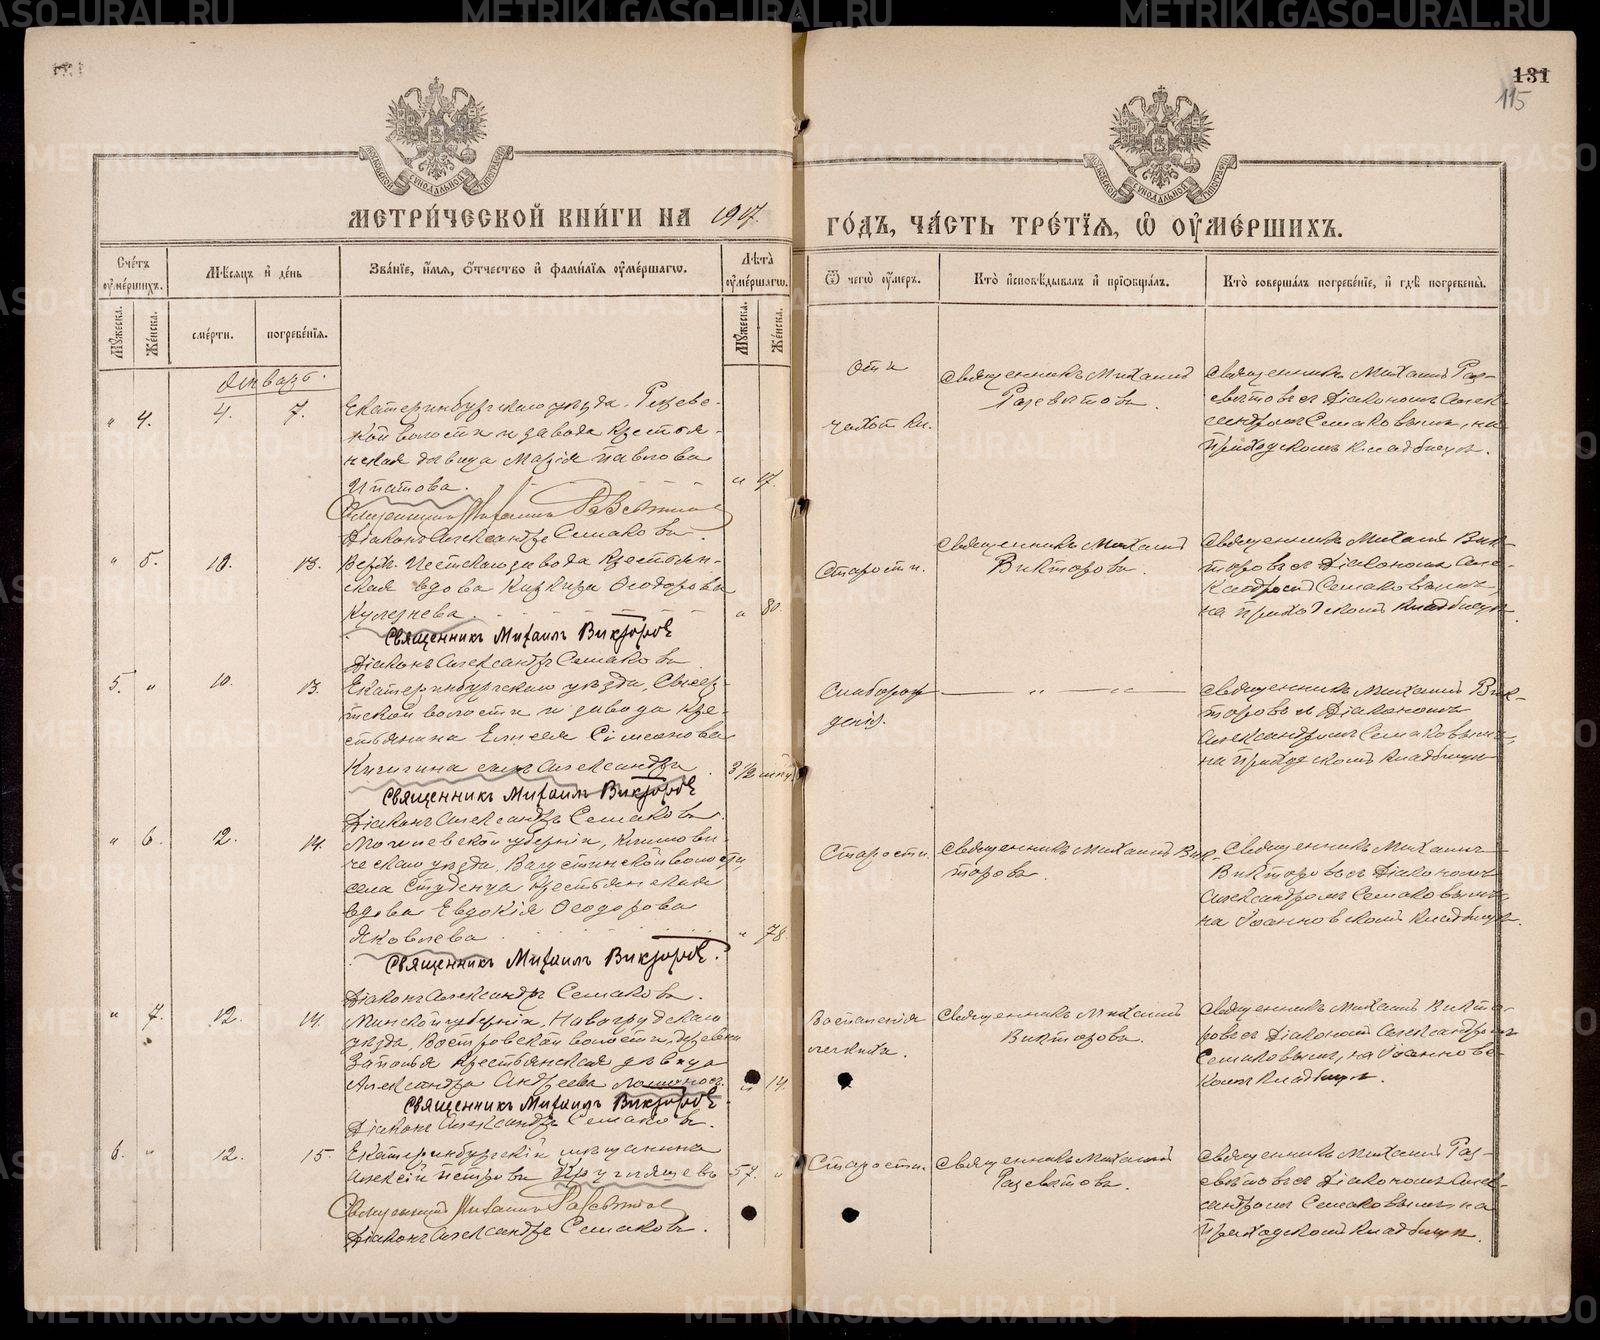 131
115
МЕТРИ́ЧЕСКОЙ КНИ́ГИ НА 1917.
ГО́ДЪ, ЧА́СТЬ ТРЕ́ТЇѦ, Ѽ ОУ҆МЕ́РШИХЪ.
Сче́тъ оу҆ме́ршихъ.
Мѣ́сѧцъ и҆ де́нь
Зва́нїе, и҆́мѧ, ѻ҆́тчество и҆ фами́лїѧ оу҆ме́ршагѡ.
Лѣ́та оу҆ме́ршагѡ.
Ѿ чегѡ̀ оу҆́меръ.
Кто̀ и҆сповѣ́дывалъ и҆ прїѡбща́лъ.
Кто̀ соверша́лъ погребе́нїе, и҆ гдѣ̀ погребены̀.
Мꙋ́жеска.
Же́нска.
сме́рти.
погребе́нїѧ.
Мꙋ́жеска.
Же́нска.
Январь.
" 4. 4. 7.
Екатеринбургскаго уѣзда, Режев-
ской волости и завода крестьян-
ская дѣвица Марія Павлова
Ипатова. " 17.
Священникъ Михаилъ
Діаконъ Александръ Семаковъ.
отъ
чахотки.
Священникъ Михаилъ
Священникъ Михаилъ
съ Діакономъ Алек-
сандромъ Семаковымъ, на
Приходскомъ кладбищѣ.
" 5. 10. 13.
Верх-Исетскаго завода крестьян-
ская вдова Ѳеодорова
" 80.
Священникъ Михаилъ Викторовъ
Діаконъ Александръ Семаковъ
Старости.
Священникъ Михаилъ
Викторовъ.
Священникъ Михаилъ Вик-
торовъ съ Діакономъ Але-
ксандромъ Семаковымъ,
на Приходскомъ кладбищѣ
5. " 10. 13.
Екатеринбургскаго уѣзда, Сысер-
тской волости и завода кре-
стьянина Елисея Симеонова
сынъ Александръ 3 1/2
Священникъ Михаилъ Викторовъ
Діаконъ Александръ Семаковъ.
Слаборож-
денія.
— " — " —
Священникъ Михаилъ Вик-
торовъ съ Діакономъ
Александромъ Семаковымъ,
на Приходскомъ кладбищѣ
" 6. 12. 14.
Могилевской губерніи, Климови-
ческаго уѣзда, волости,
села Студенца крестьянская
вдова Евдокія Ѳеодорова
Яковлева " 78.
Священникъ Михаилъ Викторовъ.
Діаконъ Александръ Семаковъ.
Старости.
Священникъ Михаилъ Вик-
торовъ.
Священникъ Михаилъ
Викторовъ съ Діакономъ
Александромъ Семаковымъ,
на Іоанновскомъ кладбищѣ.
" 7. 12. 14.
Минской губерніи, Новогрудскаго
уѣзда, волости, деревни
Заполья крестьянская дѣвица
Александра Андреева " 14.
Священникъ Михаилъ Викторовъ.
Діаконъ Александръ Семаковъ.
Воспаленія
легкихъ.
Священникъ Михаилъ
Викторовъ.
Священникъ Михаилъ Викто-
ровъ съ Діакономъ Александромъ
Семаковымъ, на Іоанновс-
комъ кладбищѣ.
6. " 12. 15.
Екатеринбургскій мѣщанинъ
Алексій Петровъ 57. "
Священникъ Михаилъ
Діаконъ Александръ Семаковъ.
Старости.
Священникъ Михаилъ
Священникъ Михаилъ
съ Діакономъ Алек-
сандромъ Семаковымъ, на
Приходскомъ кладбищѣ.
METRIKI.GASO-URAL.RU